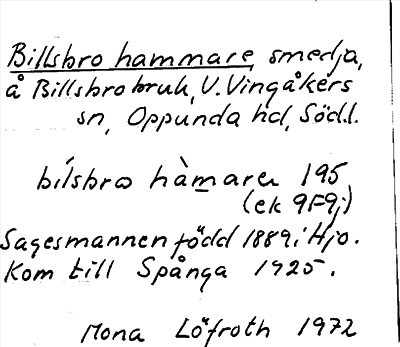 Billsbro hammare, smedja,
å Billsbro bruk, V. Vingåkers
sn, Oppunda hd, Södl.
bílsbrω hàmareɹ 195
(ek 9F9j)
Sagesmannen född 1889 i Hjo.
Kom till Spånga 1925.
Mona Löfroth 1972